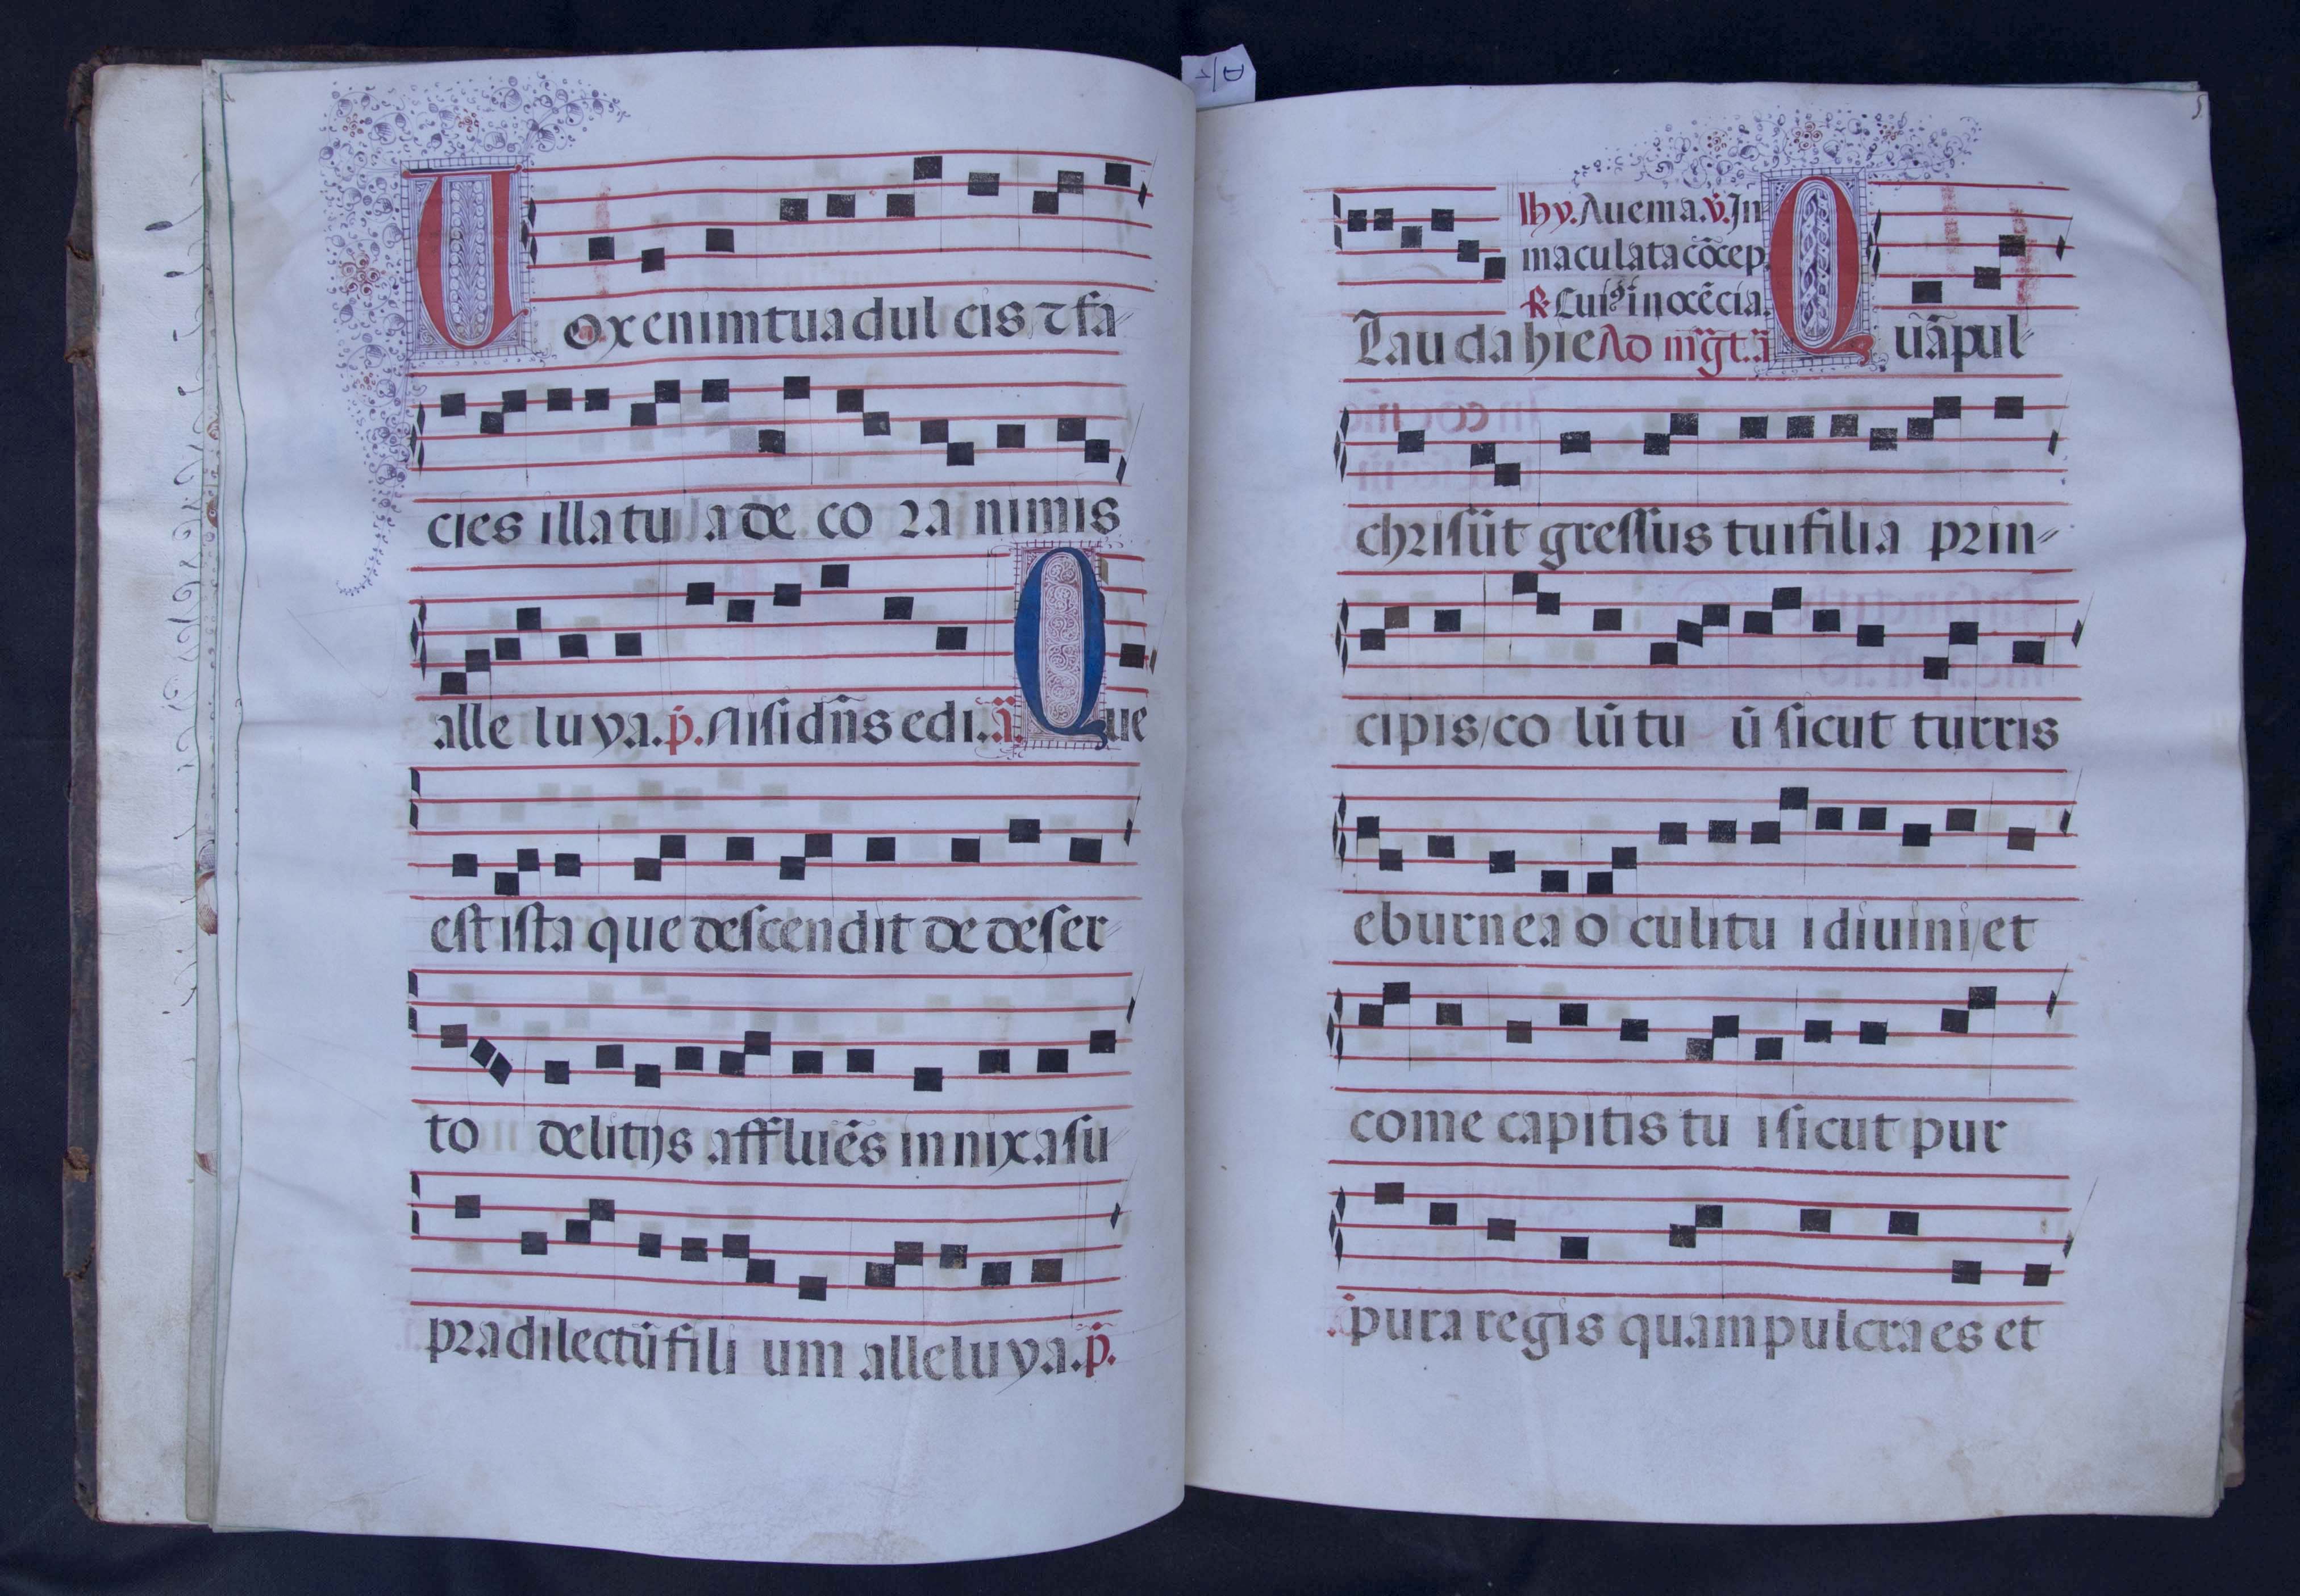 Uox enim tua dulcis ⁊ fa
cies illa tua decora nimis
alleluya. p̄. Nisi dñs edi. ā. Que
est ista que descendit de deser
to delitijs affluēs innixa su
pra dilectū filium alleluya. p̄.
D/1
5
Ihy. Aue ma. v̄. In
maculata cōcep
R. Cuiꝰ inocēcia.
Lauda hie Ad mḡt. ā Quā pul
chri sūt gressus tui filia prin
cipis / collū tuū sicut turris
eburnea oculi tui diuini / et
come capitis tui sicut pur
pura regis quam pulcra es et